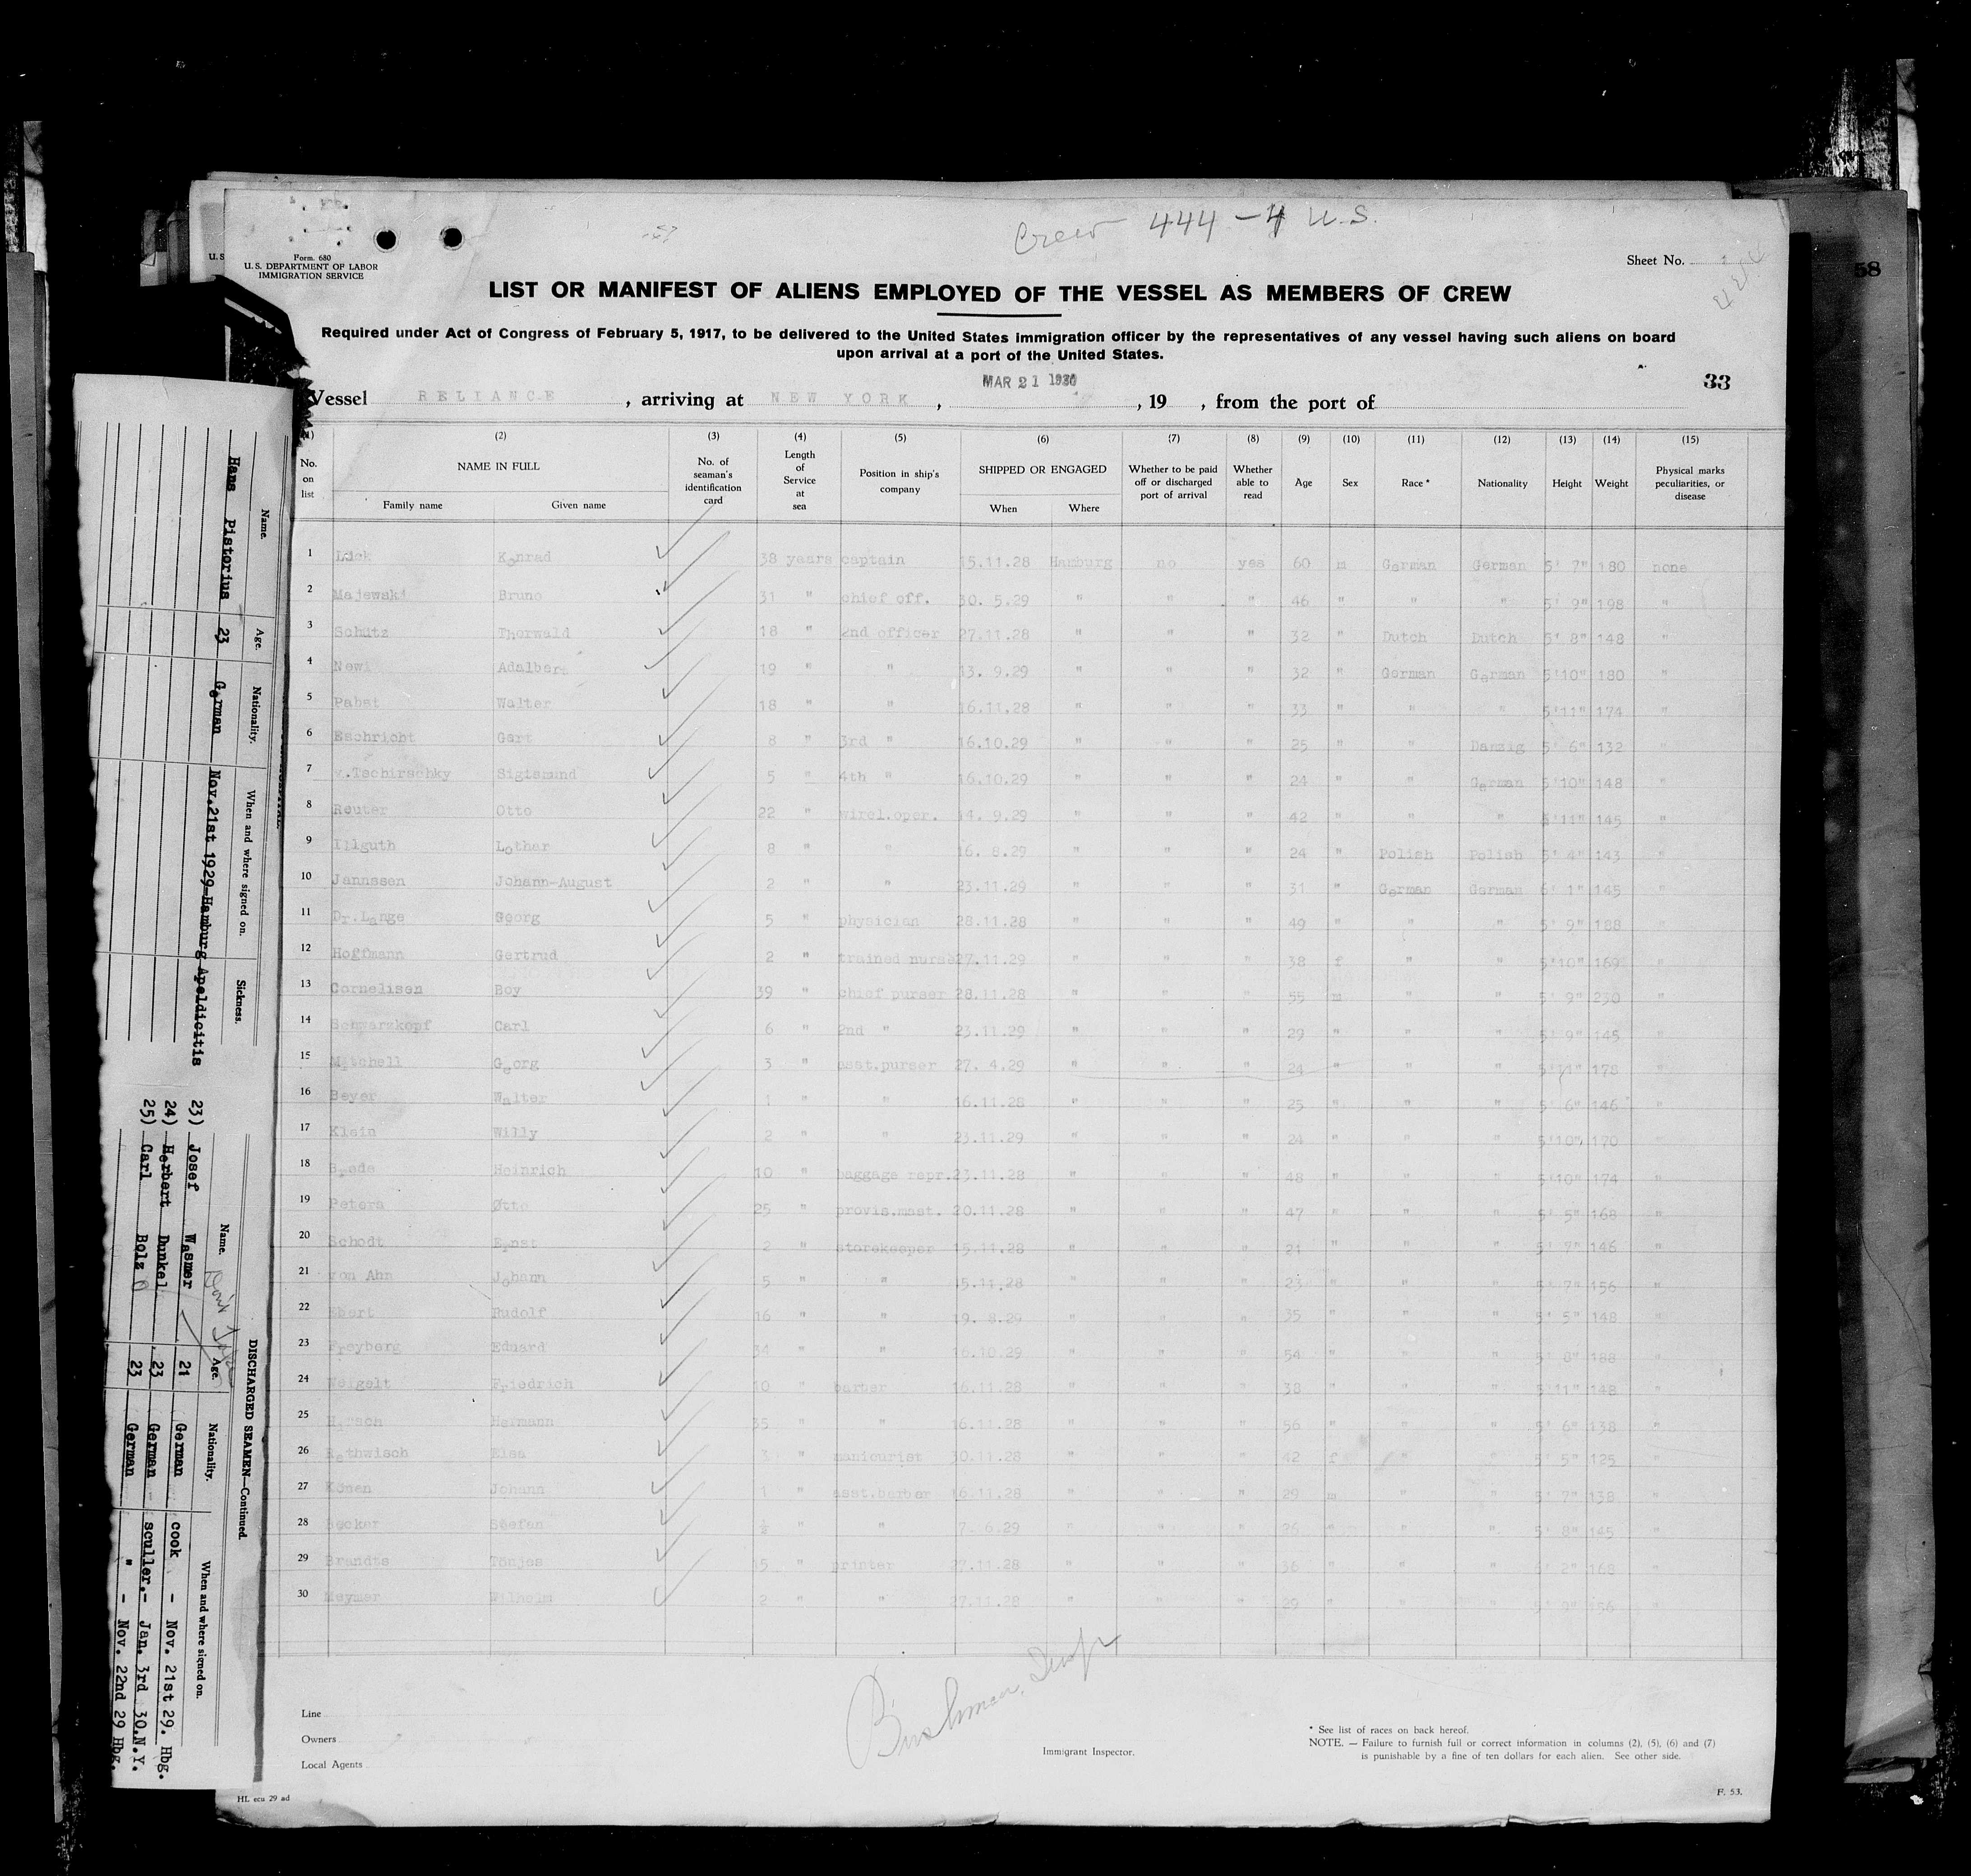 Crew 444 - 4 U.S.
Form. 680
U.S. DEPARTMENT OF LABOR
IMMIGRATION SERVICE
Sheet No.
LIST OR MANIFEST OF ALIENS EMPLOYED OF THE VESSEL AS MEMBERS OF CREW
Required under Act of Congress of February 5, 1917, to be delivered to the United States Immigration officer by the representatives of any vessel having such aliens on board
upon arrival at a port of the United States.
33
MAR 21 1930
Vessel RELIANCE, arriving at NEW YORK, , 19 , from the port of
(1) (2) (3) (4) (5) (6) (7) (8) (9) (10) (11) (12) (13) (14) (15)
No. on list NAME IN FULL Family name Given name No. of seaman's identification card Length of Service at sea Position in ship's company SHIPPED OR ENGAGED When Where Whether to be paid off or discharged port of arrival Whether able to read Age Sex Race * Nationality Height Weight Physical marks peculiarities, or disease
1 Konrad 38 years captain 15.11.28 Hamburg no yes 60 m German German 5' 7" 180 none
2 Majewski Bruno 31 " chief off. 30. 5.29 " " " 46 " " " 5' 9" 198 "
3 Schütz Thorwald 18 " 2nd officer 27.11.28 " " " 32 " Dutch Dutch 5' 8" 148 "
4 Newi Adalbert 19 " " 13. 9.29 " " " 32 " German German 5'10" 180 "
5 Pabst Walter 18 " " 16.11.28 " " " 33 " " " 5'11" 174 "
6 Eschricht Gert 8 " 3rd " 16.10.29 " " " 25 " " Danzig 5' 6" 132 "
7 v.Tschirschky Sigismund 5 " 4th " 16.10.29 " " " 24 " " German 5'10" 148 "
8 Reuter Otto 22 " wirel.oper. 14. 9.29 " " " 42 " " " 5'11" 145 "
9 Illguth Lothar 8 " " 16. 8.29 " " " 24 " Polish Polish 5' 4" 143 "
10 Jannssen Johann-August 2 " " 23.11.29 " " " 31 " German German 6' 1" 145 "
11 Dr.Lange Georg 5 " physician 28.11.28 " " " 49 " " " 5' 9" 188 "
12 Hoffmann Gertrud 2 " trained nurse 27.11.29 " " " 38 f " " 5'10" 169 "
13 Cornelisen Boy 39 " chief purser 28.11.28 " " " 55 m " " 5' 9" 230 "
14 Schwarzkopf Carl 6 " 2nd " 23.11.29 " " " 29 " " " 5' 9" 145 "
15 Mitchell Georg 3 " asst.purser 27. 4.29 " " " 24 " " " 5'11" 178 "
16 Beyer Walter 1 " " 16.11.28 " " " 25 " " " 5' 6" 146 "
17 Klein Willy 2 " " 23.11.29 " " " 24 " " " 5'10" 170 "
18 Brede Heinrich 10 " baggage repr. 23.11.28 " " " 48 " " " 5'10" 174 "
19 Peters Otto 25 " provis.mast. 20.11.28 " " " 47 " " " 5' 5" 168 "
20 Schodt Ernst 2 " storekeeper 15.11.28 " " " 21 " " " 5' 7" 146 "
21 von Ahn Johann 5 " " 15.11.28 " " " 23 " " " 5' 7" 156 "
22 Ebert Rudolf 16 " " 19. 8.29 " " " 35 " " " 5' 5" 148 "
23 Freyberg Eduard 34 " " 16.10.29 " " " 54 " " " 5' 8" 188 "
24 Weigelt Friedrich 10 " barber 16.11.28 " " " 38 " " " 5'11" 148 "
25 Hirsch Hermann 35 " " 16.11.28 " " " 56 " " " 5' 6" 138 "
26 Rethwisch Elsa 3 " manicurist 30.11.28 " " " 42 f " " 5' 5" 125 "
27 Könen Johann 1 " asst.barber 16.11.28 " " " 29 m " " 5' 7" 138 "
28 Becker Stefan ½ " " 7. 6.29 " " " 26 " " " 5' 8" 145 "
29 Brandts Tönjes 15 " printer 27.11.28 " " " 36 " " " 6' 2" 168 "
30 Wilhelm 2 " " 27.11.28 " " " 29 " " " 5' 9" 156 "
Line
Owners
Local Agents
Bushman, Insp
Immigrant Inspector.
* See list of races on back hereof.
NOTE. — Failure to furnish full or correct information in columns (2), (5), (6) and (7)
is punishable by a fine of ten dollars for each alien. See other side.
HL ecu 29 ad
F. 53.
58
Name. Age. Nationality. When and where signed on. Sickness.
Hans Pistorius 23 German Nov.21st 1929-Hamburg Apeldicitis
DISCHARGED SEAMEN—Continued.
Name. Age. Nationality. When and where signed on.
23) Josef Wasmer 21 German cook - Nov. 21st 29. Hbg.
24) Herbert Dunkel 23 German sculler.- Jan. 3rd 30.N.Y.
25) Carl Bolz 23 German " - Nov. 22nd 29 Hbg.